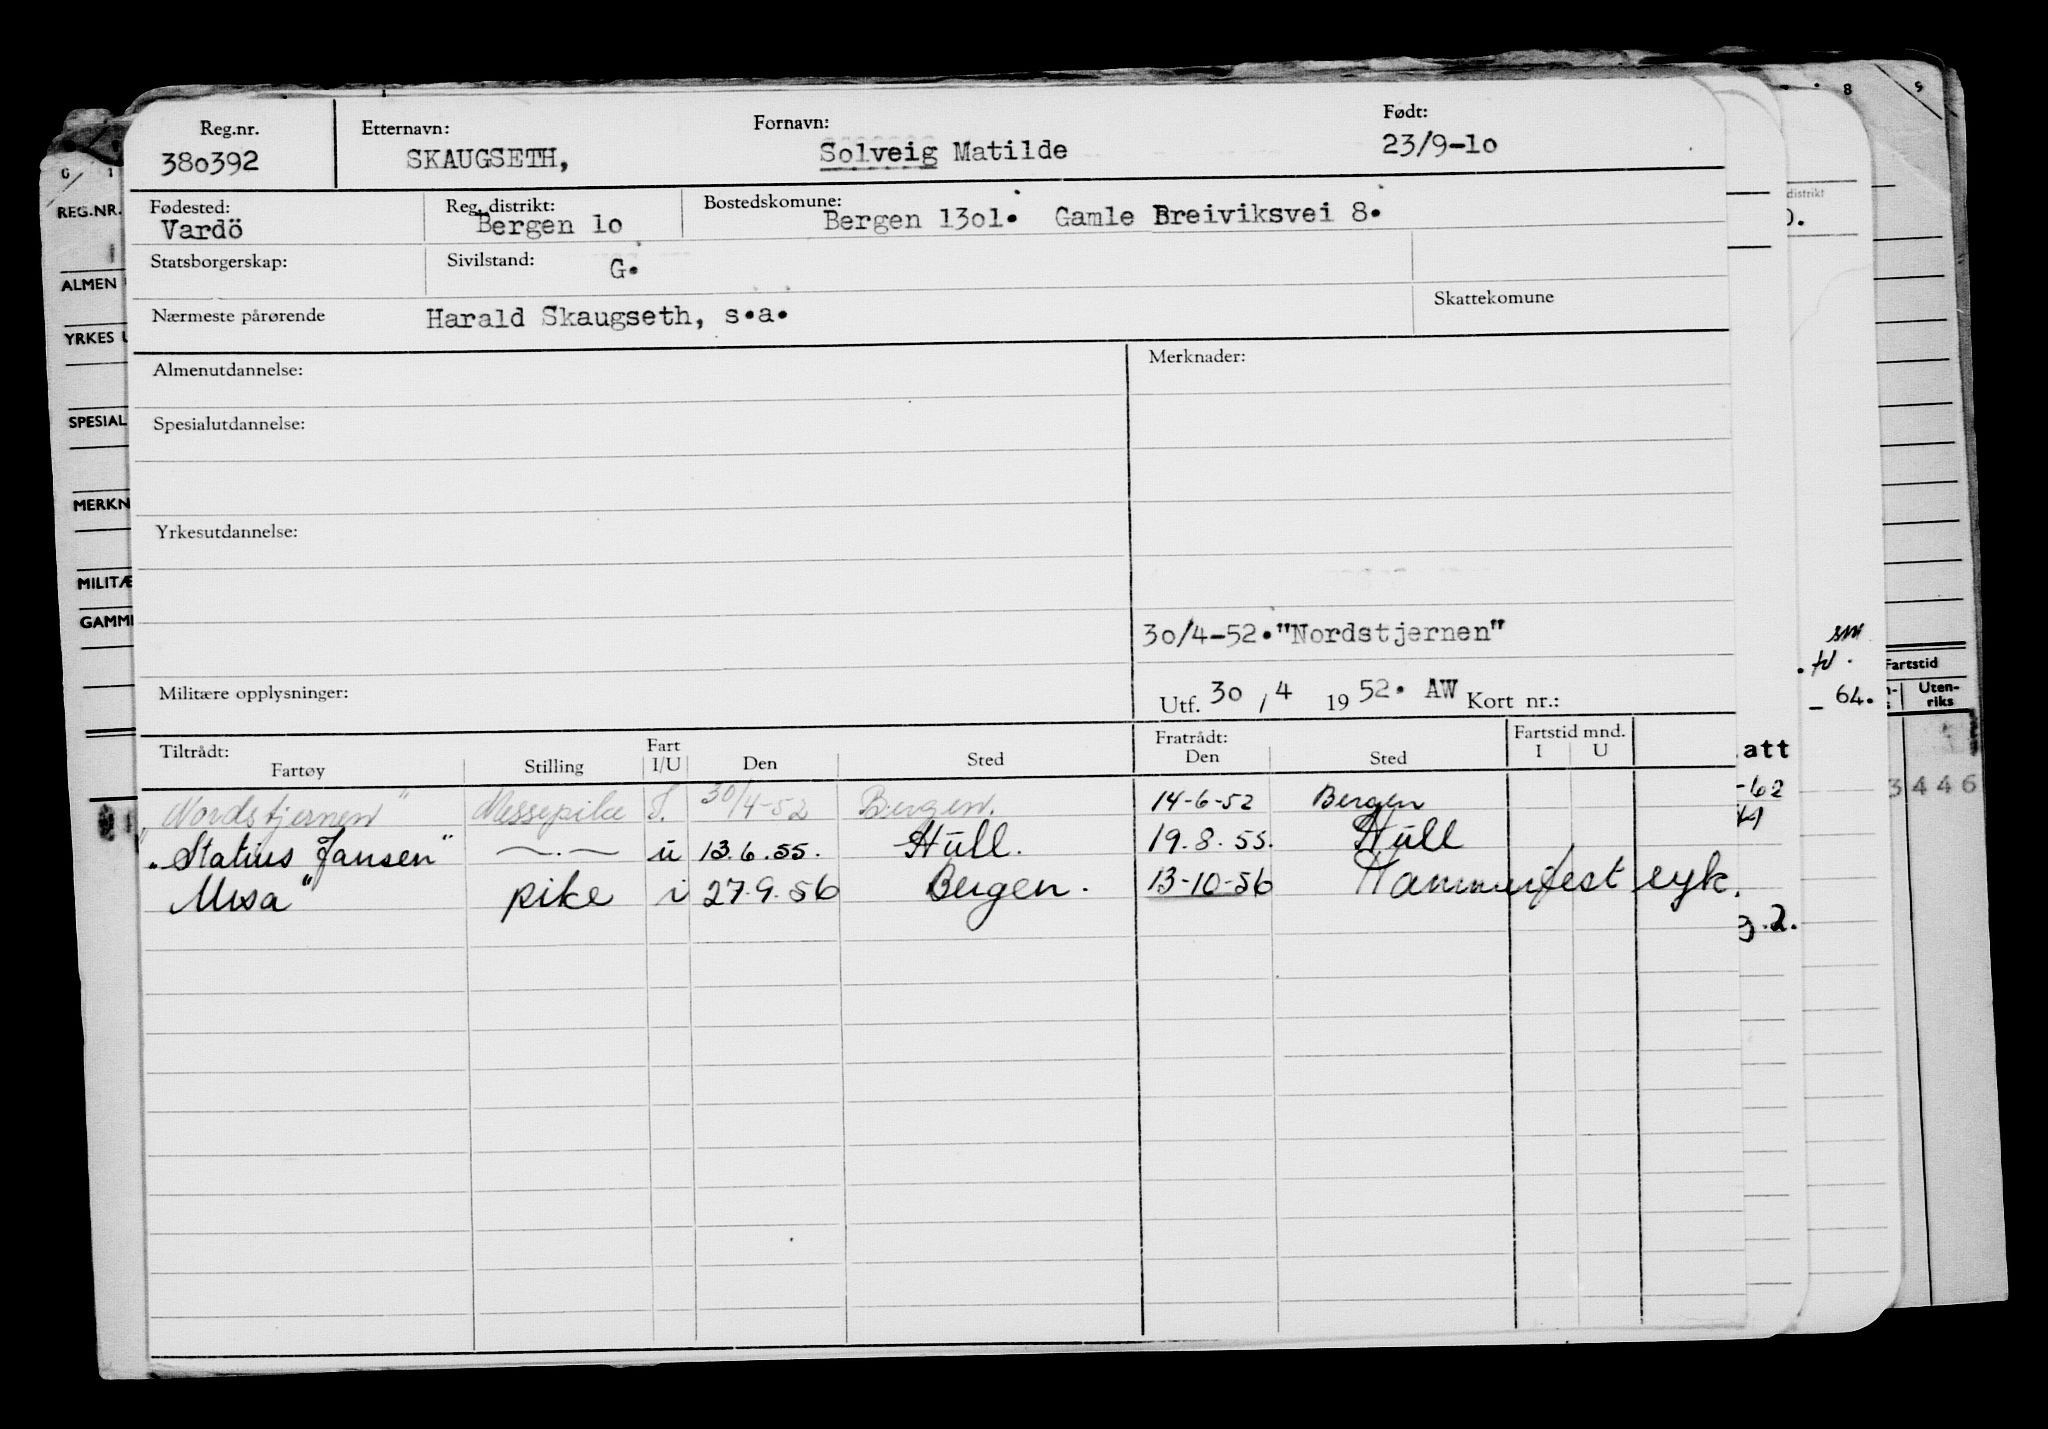 Reg.nr. Etternavn: Fornavn: Født:
380392 SKAUGSETH, Solveig Matilde 23/9-10
Fødested: Reg. distrikt: Bostedskomune:
Vardö Bergen 10 Bergen 1301. Gamle Breiviksvei 8.
Statsborgerskap: Sivilstand: G.
Nærmeste pårørende Harald Skaugseth, s.a. Skattekomune
Almenutdannelse: Merknader:
Spesialutdannelse:
Yrkesutdannelse:
30/4-52."Nordstjernen"
Militære opplysninger: Utf. 30 / 4 19 52. AW Kort nr.:
Tiltrådt: Fart Fratrådt: Fartstid mnd.
Fartøy Stilling I/U Den Sted Den Sted I U
"Nordstjernen" Messepike I. 30/4-52 Bergen. 14-6-52 Bergen
"Statius Jansen" —.— u 13.6.55. Hull. 19.8.55. Hull
Mosa" pike i 27.9.56 Bergen. 13-10-56 Hammerfest syk.
REG.NR.
ALMEN
YRKES U
SPESIAL
MERKN
MILITÆ
GAMM
distrikt
O.
sm
64.
Fartstid
Uten-
riks
att
-62
3446
g.2.